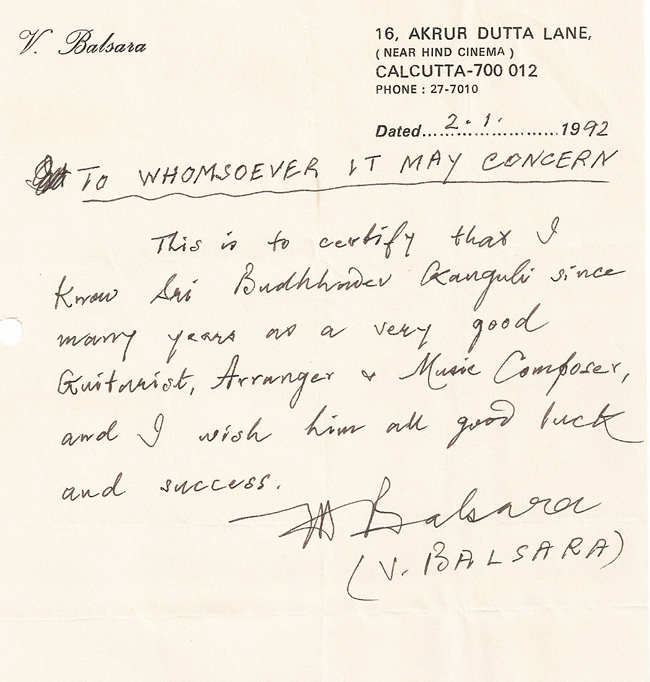 V. Balsara
16, AKRUR DUTTA LANE,
( NEAR HIND CINEMA )
CALCUTTA-700 012
PHONE : 27-7010
Dated...2.1...................1992
TO WHOMSOEVER IT MAY CONCERN
This is to certify that I
know Sri Budhhadev Ganguli since
many years as a very good
Guitarist, Arranger & Music Composer,
and I wish him all good luck
and success.
Balsara
(V. BALSARA)